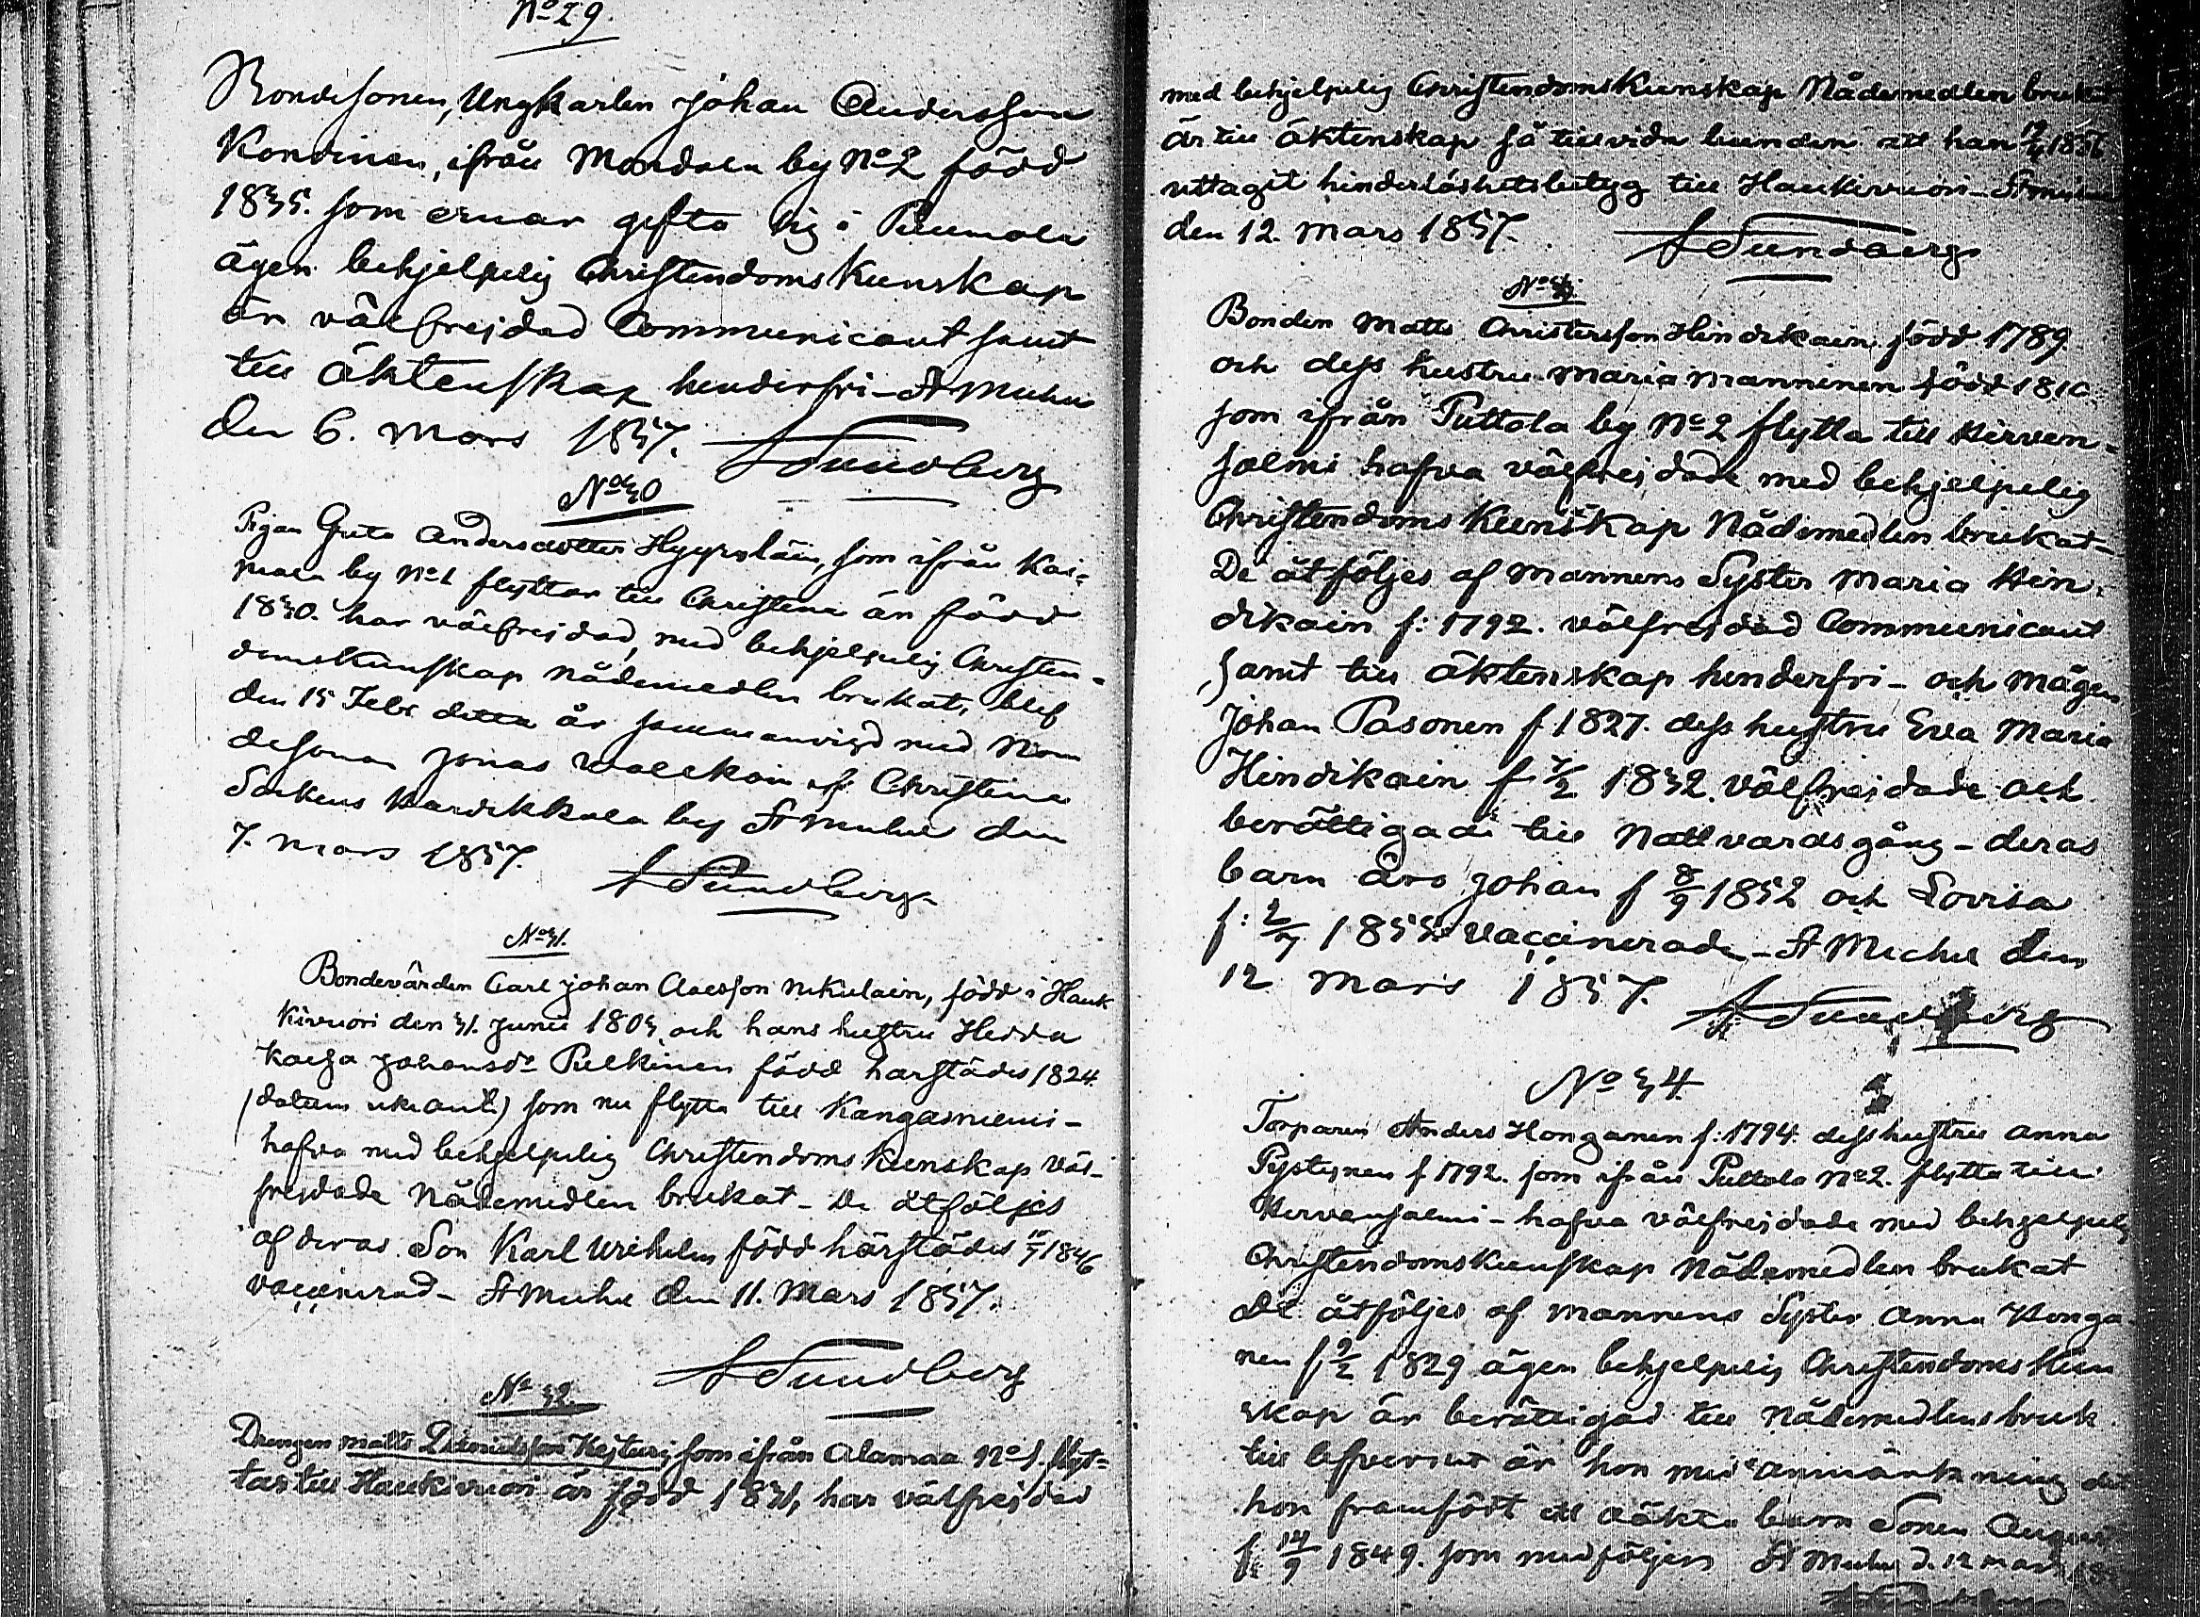 No 29.
Bondesonen, Ungkarlen Johan Andersson
Korvinen, ifrån Mordala by No 2 född
1835. som ernar gifta sig i Puumala
äger behjelpelig Christendoms Kunskap
är välfrejdad Communicant samt
till äktenskap hinderfri – St Michel
den 6. Mars 1857. A Sundberg
No 30
Pigan Greta Andersdotter Hyyryläin, som ifrån Kai-
mala by No 1 flyttar till Christina är född
1830. har välfrejdad, med behjelpelig Christen-
domskunskap nådemedlen brukat, blef
den 15 Febr detta år sammanvigd med
desonen Jonas if. Christina
Sockens Karikkala by St Michel den
7. Mars 1857.
A Sundberg
No 31.
Bondevärden Carl Johan Claesson Nikulain, född i Hau
kivuori den 31. Junii 1803 och hans hustru Hedda
Kaisa Johansdr Pulkinen född härstädes 1824
(datum okändt) som nu flytta till Kangasniemi –
hafva med behjelpelig Christendoms Kunskap väl-
frejdade Nådemedlen brukat – De åtföljes
af deras Son Karl Wilhelm född härstädes 1846
vaccinerad – St Michel den 11. Mars 1857.
A Sundberg
No 32.
Drengen Matts Danielsson Kejturi, som ifrån Alamaa No 1. flyt-
tar till Haukivuori är född 1831, har välfrejdad
med behjelpelig Christendoms Kunskap Nådemedlen brukat
är till äktenskap så till vida bunden att han 185
uttagit hinderlöshetsbetyg till Haukivuori – St Michel
den 12. Mars 1857. A Sundberg
No 33.
Bonden Matts Christersson Hindikain född 1789
och dess hustru Maria Manninen född 1810
som ifrån Puttola by No 2 flytta till Hirven-
salmi hafva välfrejdade med behjelpelig
Christendoms Kunskap Nådemedlen brukat –
De åtföljes af mannens Syster Maria Hin-
dikain f: 1792. välfrejdad Communicant
samt till äktenskap hinderfri – och mågen
Johan Pasonen f 1827. dess hustru Eva Maria
Hindikain f 7/2 1832. välfrejdade och
berättigade till Nattvardsgång – deras
barn äro Johan f 8/9 1852 och Lovisa
f: 2/7 1855 vaccinerade – St Michel den
12 Mars 1857. A Sundberg
No 34.
Torparen Anders Honganen f: 1794. dess hustru Anna
Pystynen f 1792. som ifrån Puttola No 2. flytta till
Hirvensalmi – hafva välfrejdade med behjelpelig
Christendomskunskap Nådemedlen brukat
De åtföljes af mannens Syster Anna Honga
nen f 2/2 1829 äger behjelpelig Christendoms Kun
skap är berättigad till Nådemedlens bruk
till lefvernet är hon med anmärkning då
hon framfödt ett oäkta barn Sonen August
f: 14/9 1849. som medföljer St Michel d. 12 Mars 185